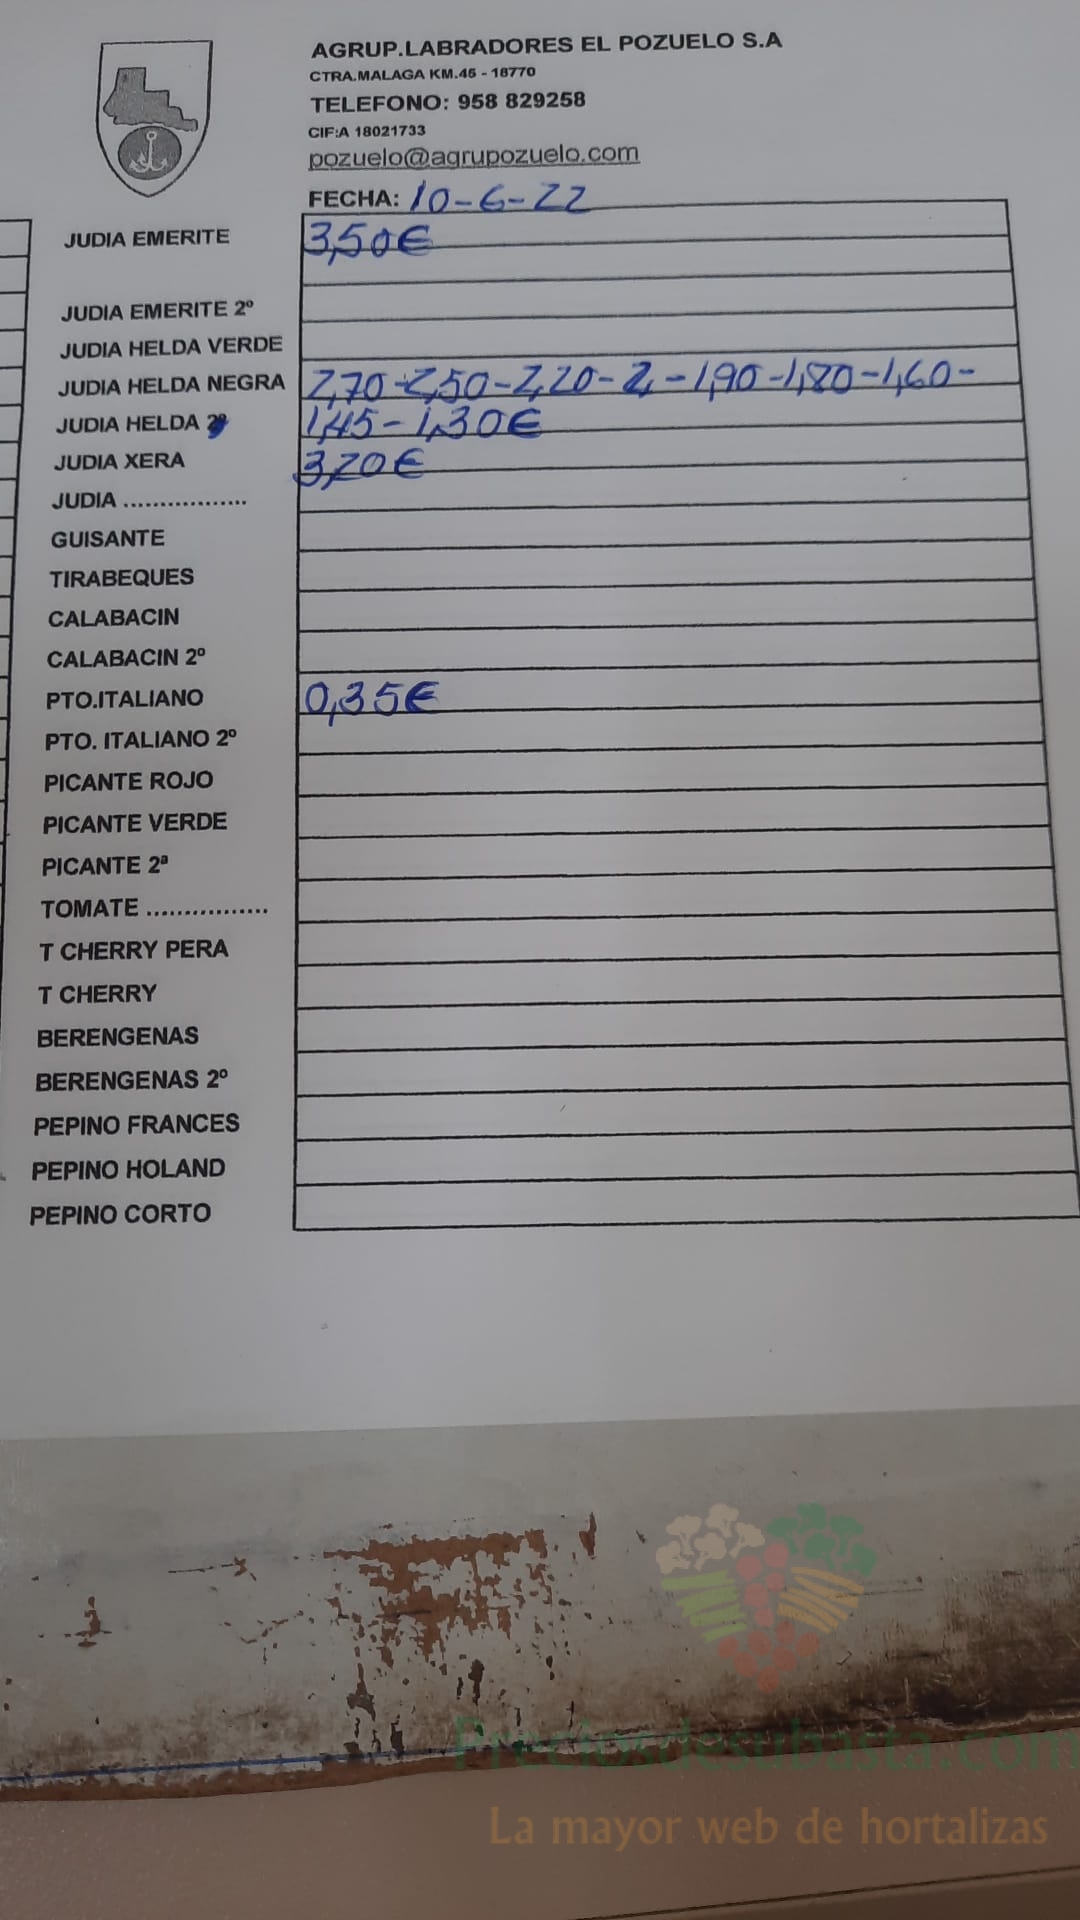 AGRUP.LABRADORES EL POZUELO S.A
CTRA.MALAGA KM.45 - 18770
TELEFONO: 958 829258
CIF:A 18021733
pozuelo@agrupozuelo.com
FECHA: 10-6-22
JUDIA EMERITE 3,50€
JUDIA EMERITE 2º
JUDIA HELDA VERDE
JUDIA HELDA NEGRA 2,70-2,50-2,20-2,-1,90-1,80-1,60-
JUDIA HELDA 1,45-1,30€
JUDIA XERA 3,20€
JUDIA .................
GUISANTE
TIRABEQUES
CALABACIN
CALABACIN 2º
PTO.ITALIANO 0,35€
PTO. ITALIANO 2º
PICANTE ROJO
PICANTE VERDE
PICANTE 2ª
TOMATE ................
T CHERRY PERA
T CHERRY
BERENGENAS
BERENGENAS 2º
PEPINO FRANCES
PEPINO HOLAND
PEPINO CORTO
Preciosdesubasta.com
La mayor web de hortalizas